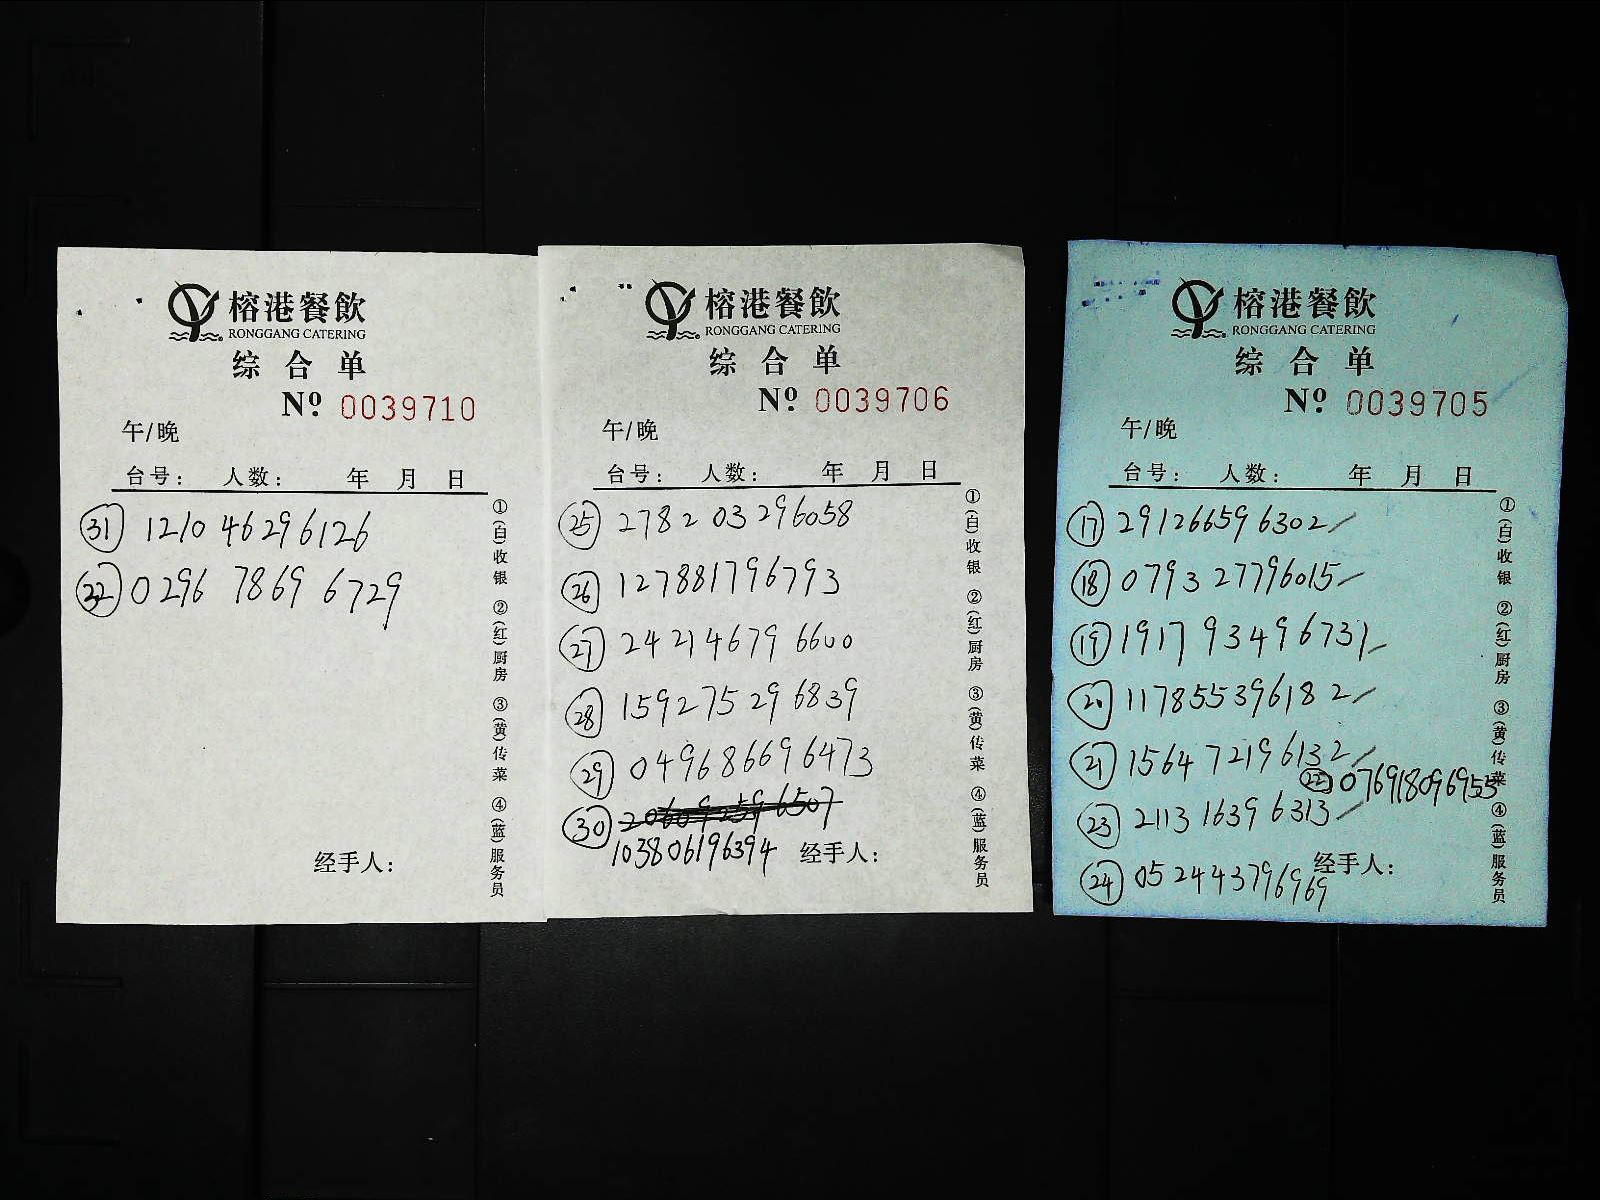 榕港餐飲
RONGGANG CATERING
综合单
Nº 0039710
午/晚
台号: 人数: 年 月 日
㉛ 121046296126
㉜ 0296 7869 6729
经手人:
①(白)收银 ②(红)厨房 ③(黄)传菜 ④(蓝)服务员
榕港餐飲
RONGGANG CATERING
综合单
Nº 0039706
午/晚
台号: 人数: 年 月 日
㉕ 2782 03 296058
㉖ 127881796793
㉗ 24 214679 6600
㉘ 1592752 96839
㉙ 049686696473
㉚ 206092596507
103806196394
经手人:
①(白)收银 ②(红)厨房 ③(黄)传菜 ④(蓝)服务员
榕港餐飲
RONGGANG CATERING
综合单
Nº 0039705
午/晚
台号: 人数: 年 月 日
⑰ 291266596302
⑱ 0793 27796015
⑲ 1917 93496731
⑳ 117855396182
㉑ 156472196132
㉒ 076918096953
㉓ 2113 16396313
㉔ 052443796969
经手人:
①(白)收银 ②(红)厨房 ③(黄)传菜 ④(蓝)服务员